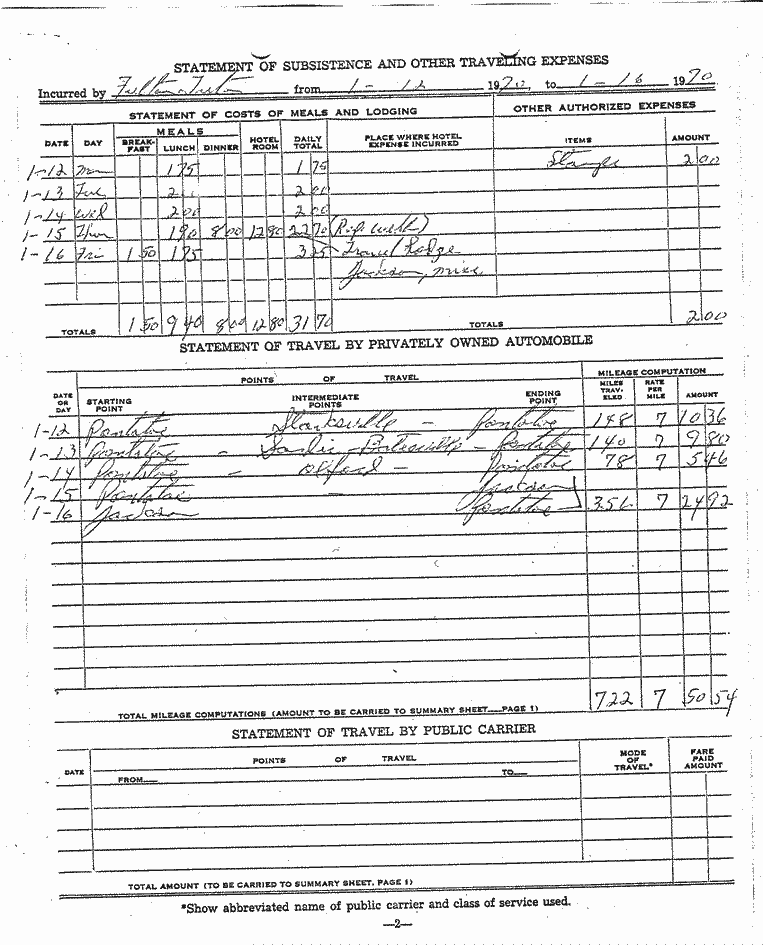 STATEMENT OF SUBSISTENCE AND OTHER TRAVELING EXPENSES
Incurred by Fulton Tutor from 1-12 1970, to 1-16 1970
STATEMENT OF COSTS OF MEALS AND LODGING OTHER AUTHORIZED EXPENSES
DATE DAY MEALS BREAK-FAST LUNCH DINNER HOTEL ROOM DAILY TOTAL PLACE WHERE HOTEL EXPENSE INCURRED ITEMS AMOUNT
1-12 Mon 1 75 1 75 Stamps 2 00
1-13 Tue 2 00
1-14 Wed 2 00 2 00
1-15 Thur 1 90 8 00 12 80 22 70
1-16 Fri 1 50 1 75 3 25 Travel Lodge
Jackson, Miss
TOTALS 1 50 9 40 8 00 12 80 31 70 TOTALS 2 00
STATEMENT OF TRAVEL BY PRIVATELY OWNED AUTOMOBILE
DATE OR DAY POINTS OF TRAVEL MILEAGE COMPUTATION
STARTING POINT INTERMEDIATE POINTS ENDING POINT MILES TRAV-ELED RATE PER MILE AMOUNT
1-12 Pontotoc Starksville - Pontotoc 148 7 10 36
1-13 Pontotoc - Sardis - Batesville - Pontotoc 140 7 9 80
1-14 Pontotoc - Oxford - Pontotoc 78 7 5 46
1-15 Pontotoc - Jackson
1-16 Jackson Pontotoc 356 7 24 92
TOTAL MILEAGE COMPUTATIONS (AMOUNT TO BE CARRIED TO SUMMARY SHEET---PAGE 1) 722 7 50 54
STATEMENT OF TRAVEL BY PUBLIC CARRIER
DATE POINTS OF TRAVEL MODE OF TRAVEL* FARE PAID AMOUNT
FROM--- TO---
TOTAL AMOUNT (TO BE CARRIED TO SUMMARY SHEET, PAGE 1)
*Show abbreviated name of public carrier and class of service used.
—2—